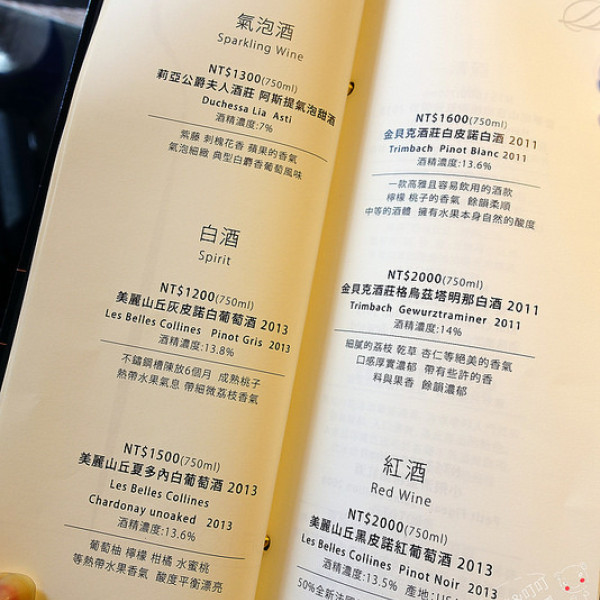 氣泡酒
Sparkling Wine
NT$1300(750ml)
莉亞公爵夫人酒莊 阿斯提氣泡甜酒
Duchessa Lia Asti
酒精濃度:7%
紫藤 刺槐花香 蘋果的香氣
氣泡細緻 典型白麝香葡萄風味
白酒
Spirit
NT$1200(750ml)
美麗山丘灰皮諾白葡萄酒 2013
Les Belles Collines Pinot Gris 2013
酒精濃度:13.8%
不鏽鋼槽陳放6個月 成熟桃子
熱帶水果氣息 帶細微荔枝香氣
NT$1500(750ml)
美麗山丘夏多內白葡萄酒 2013
Les Belles Collines
Chardonay unoaked 2013
酒精濃度:13.6%
葡萄柚 檸檬 柑橘 水蜜桃
等熱帶水果香氣 酸度平衡漂亮
NT$1600(750ml)
金貝克酒莊白皮諾白酒 2011
Trimbach Pinot Blanc 2011
酒精濃度:13.6%
一款高雅且容易飲用的酒款
檸檬 桃子的香氣 餘韻柔順
中等的酒體 擁有水果本身自然的酸度
NT$2000(750ml)
金貝克酒莊格烏茲塔明那白酒 2011
Trimbach Gewurztraminer 2011
酒精濃度:14%
細膩的荔枝 乾草 杏仁等絕美的香氣
口感厚實濃郁 帶有些許的香
料與果香 餘韻濃郁
紅酒
Red Wine
NT$2000(750ml)
美麗山丘黑皮諾紅葡萄酒 2013
Les Belles Collines Pinot Noir 2013
酒精濃度:13.5% 產地:USA
50%全新法國